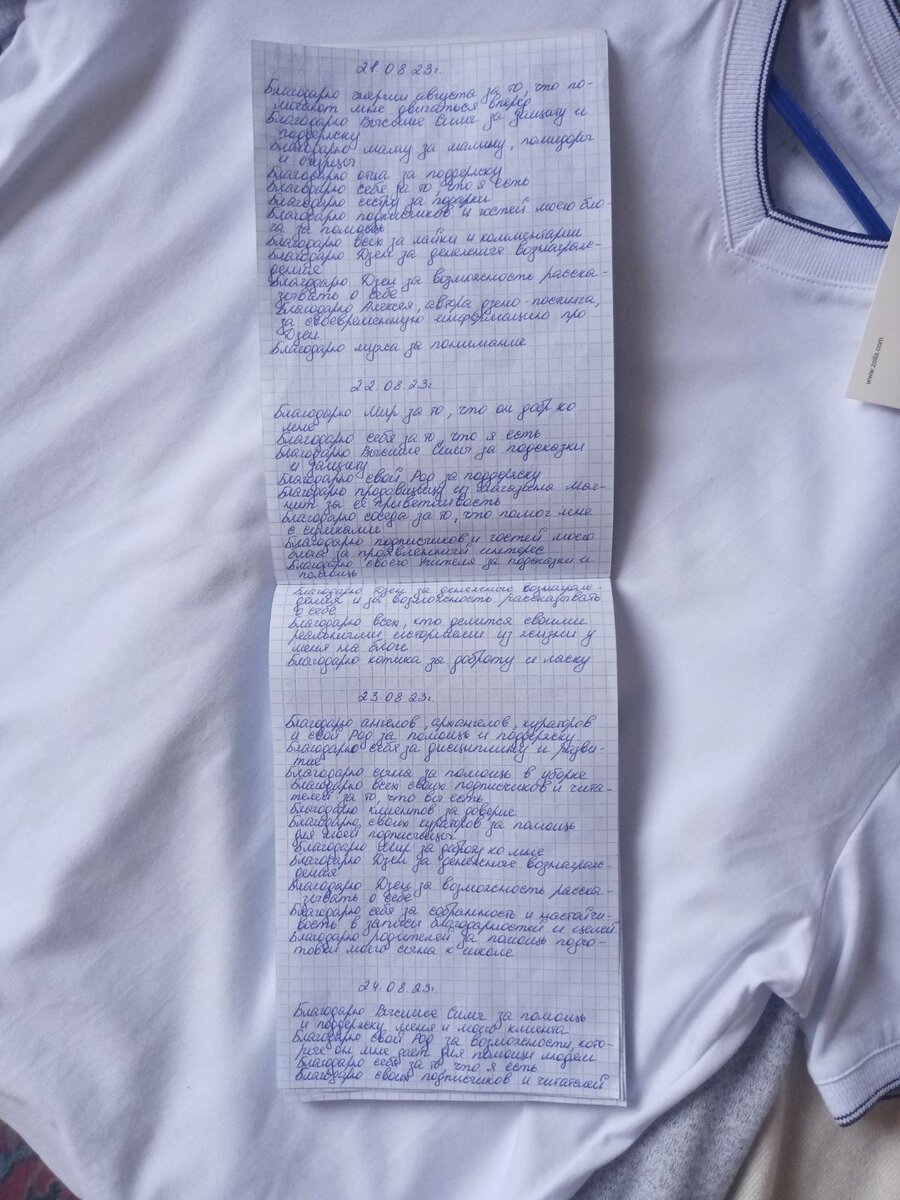 21.08.23г.
Благодарю энергии августа за то, что по-
могают мне двигаться вперед
Благодарю Высшие Силы за защиту и
поддержку
Благодарю маму за малину, помидоры
и огурцы
Благодарю отца за поддержку
Благодарю себя за то, что я есть
Благодарю сестру за подарки
Благодарю подписчиков и гостей моего бло-
га за помощь
Благодарю всех за лайки и комментарии
Благодарю Дзен за денежное вознаграж-
дения
Благодарю Дзен за возможность расска-
зывать о себе
Благодарю Алексея, автора дзено-постинга,
за своевременную информацию про
Дзен
Благодарю мужа за понимание
22.08.23г.
Благодарю Мир за то, что он добр ко
мне
Благодарю себя за то, что я есть
Благодарю Высшие Силы за подсказки
и защиту
Благодарю свой Род за поддержку
Благодарю продавщицу из магазина Маг-
нит за её приветливость
Благодарю соседа за то, что помог мне
с сумками
Благодарю подписчиков и гостей моего
блога за проявленный интерес
Благодарю своего Учителя за подсказки и
помощь
Благодарю Дзен за денежное вознаграж-
дения и за возможность рассказывать
о себе
Благодарю всех, кто делится своими
реальными историями из жизни у
меня на блоге
Благодарю котика за доброту и ласку
23.08.23г.
Благодарю ангелов, архангелов, кураторов
и свой Род за помощь и поддержку
Благодарю себя за дисциплину и разви-
тие
Благодарю сына за помощь в уборке
Благодарю всех своих подписчиков и чита-
телей за то, что вы есть
Благодарю клиентов за доверие
Благодарю своих кураторов за помощь
для моей подписчицы
Благодарю Мир за доброту ко мне
Благодарю Дзен за денежное вознаграж-
дения
Благодарю Дзен за возможность расска-
зывать о себе
Благодарю себя за собранность и настойчи-
вость в записи благодарностей и целей
Благодарю родителей за помощь подго-
товки моего сына к школе
24.08.23г.
Благодарю Высшие Силы за помощь
и поддержку меня и моего клиента
Благодарю свой Род за возможности, кото-
рые он мне дает для помощи людям
Благодарю себя за то, что я есть
Благодарю своих подписчиков и читателей
www.zolla.com